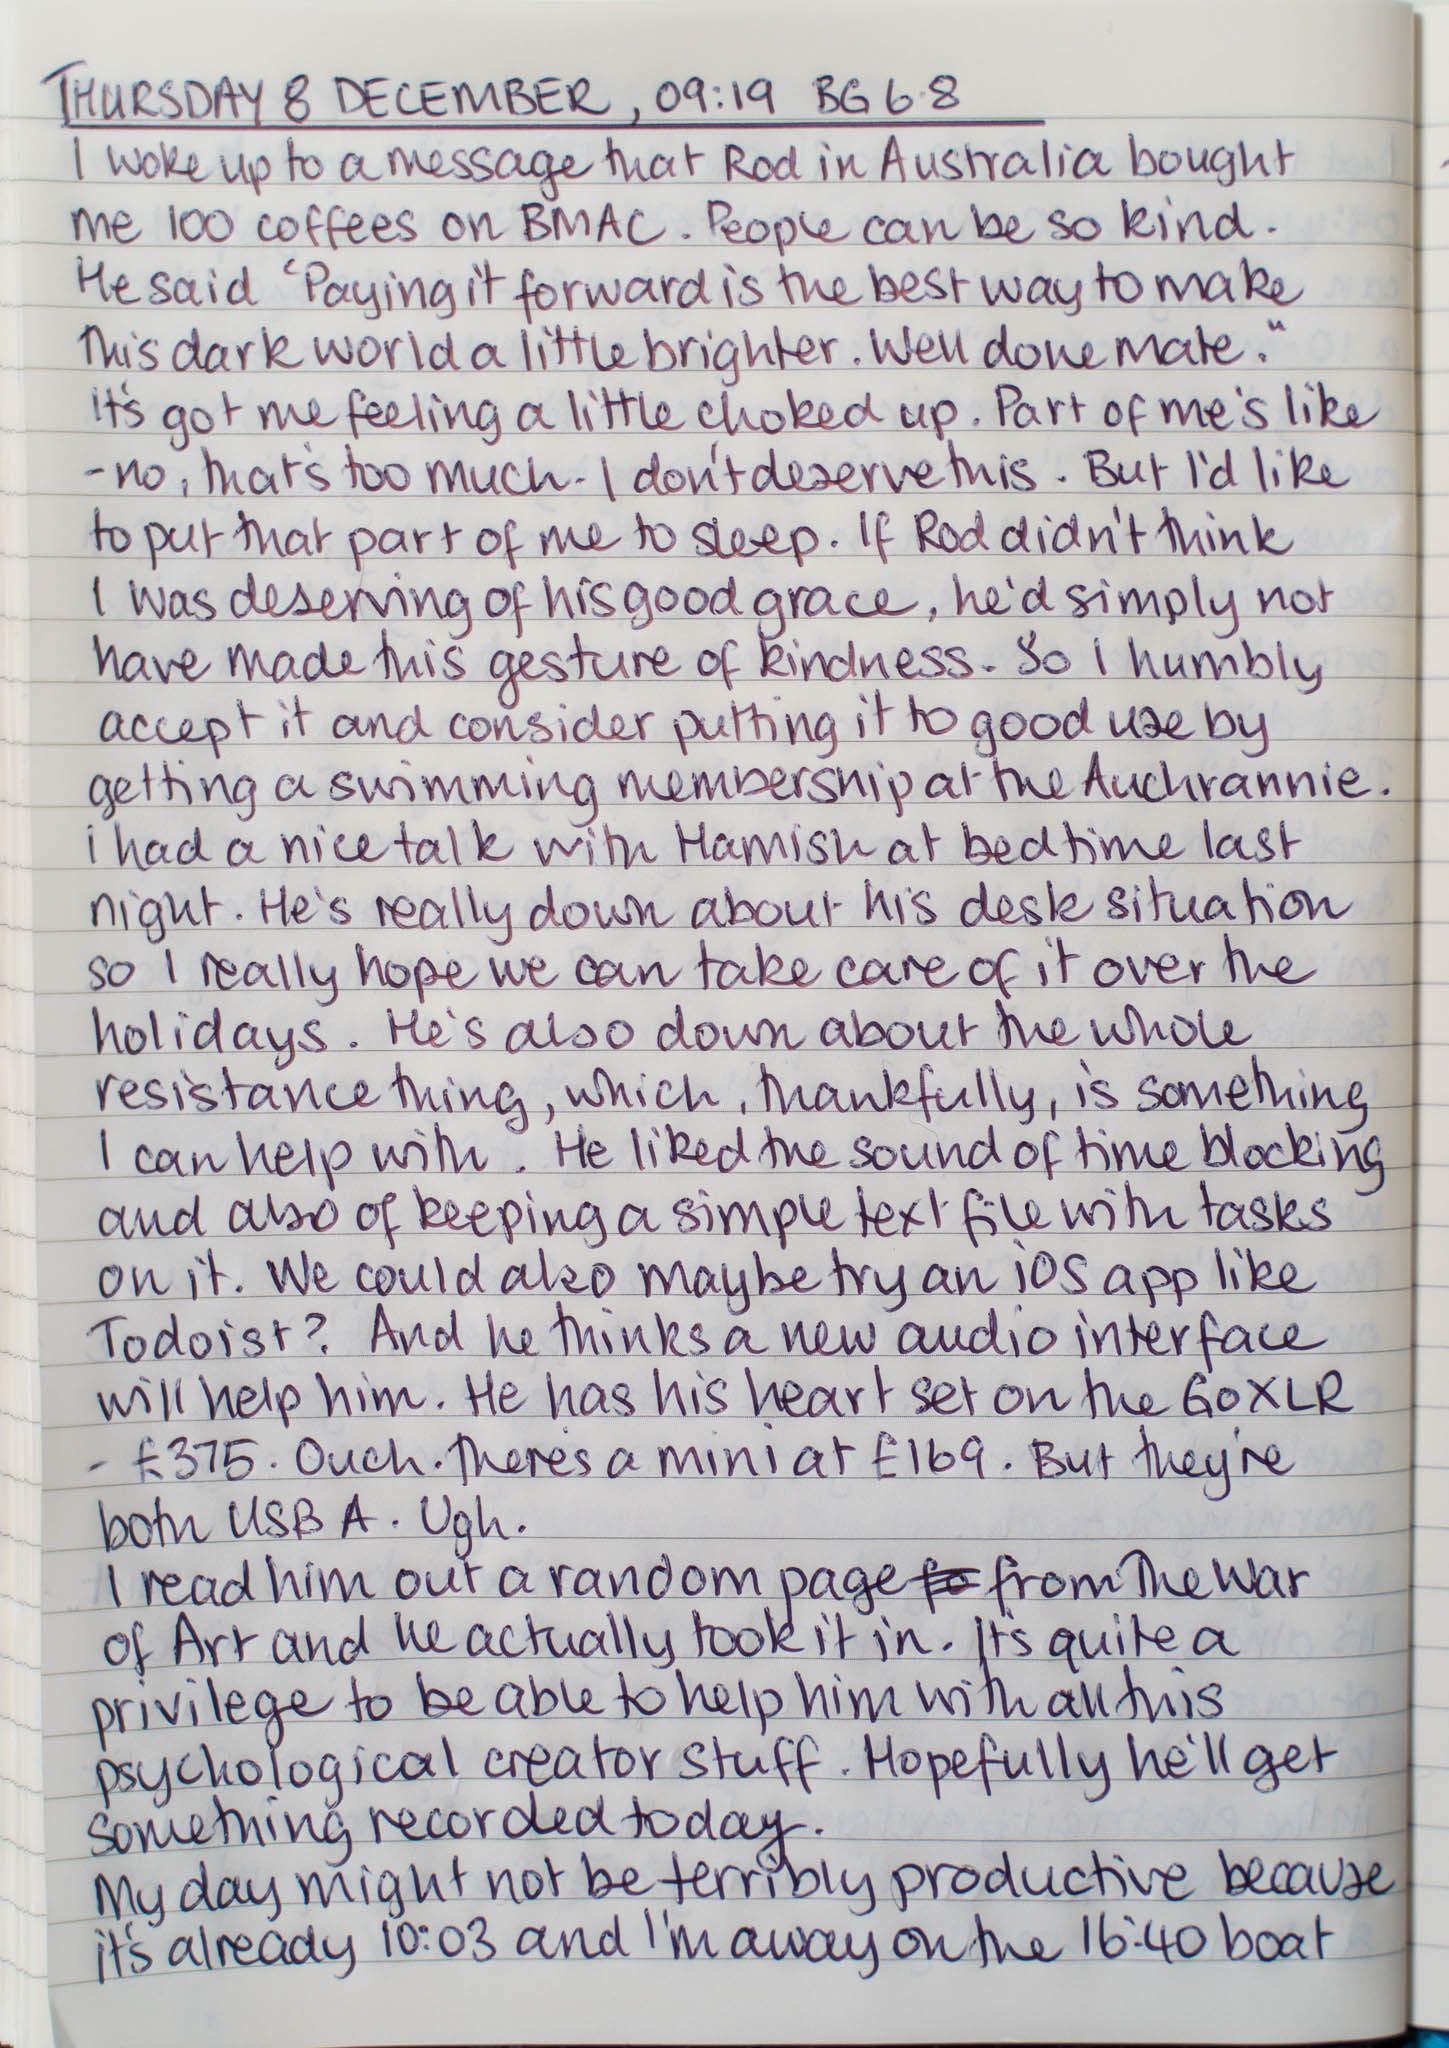 THURSDAY 8 DECEMBER, 09:19 BG 6.8
I woke up to a message that Rod in Australia bought
me 100 coffees on BMAC. People can be so kind.
He said "Paying it forward is the best way to make
this dark world a little brighter. Well done mate."
It's got me feeling a little choked up. Part of me's like
- no, that's too much - I don't deserve this. But I'd like
to put that part of me to sleep. If Rod didn't think
I was deserving of his good grace, he'd simply not
have made this gesture of kindness. So I humbly
accept it and consider putting it to good use by
getting a swimming membership at the Auchrannie.
I had a nice talk with Hamish at bedtime last
night. He's really down about his desk situation
so I really hope we can take care of it over the
holidays. He's also down about the whole
resistance thing, which, thankfully, is something
I can help with. He liked the sound of time blocking
and also of keeping a simple text file with tasks
on it. We could also maybe try an iOS app like
Todoist? And he thinks a new audio interface
will help him. He has his heart set on the GoXLR
- £375. Ouch. There's a mini at £169. But they're
both USB A. Ugh.
I read him out a random page fo from The War
of Art and he actually took it in. It's quite a
privilege to be able to help him with all this
psychological creator stuff. Hopefully he'll get
something recorded today.
My day might not be terribly productive because
it's already 10:03 and I'm away on the 16:40 boat